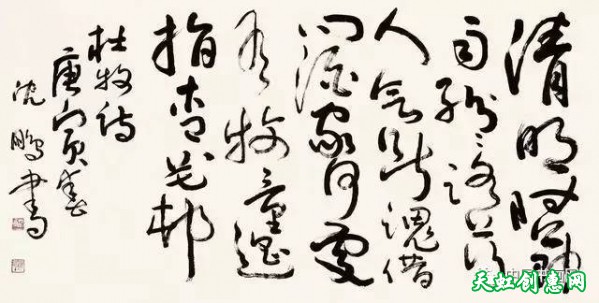 清明时节
雨纷纷路上行
人欲断魂借
问酒家何处
有牧童遥
指杏花村
杜牧诗
庚寅春
沈鹏书
天虹创意网